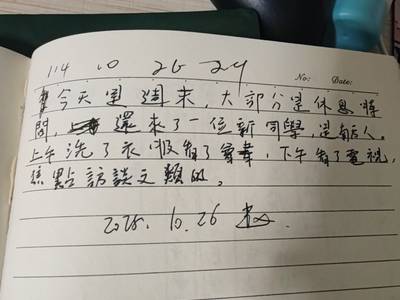 114 10 26 24
No: Date:
今天是週末，大部分是休息時
間，還來了一位新同學，是前人。
上午洗了衣服，看了書，下午看了電視，
焦點訪談文類的。
2025.10.26